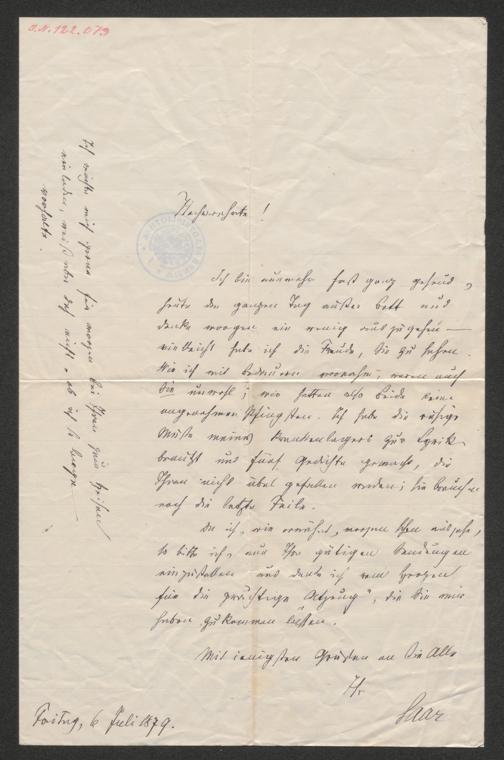 J.N. 122.079
Hochverehrte!
Ich bin nunmehr fast ganz gesund,
heute den ganzen Tag außer Bett und
denke morgen ein wenig auszugehen —
vielleicht habe ich die Freude, Sie zu sehen.
Wie ich mit Bedauern vernahm, waren auch
Sie unwohl; wir hatten also beide keine
angenehmen Pfingsten. Ich habe die ruhige
Muße meines Krankenlagers zur Lyrik
benützt und fünf Gedichte gemacht, die
Ihnen nicht übel gefallen werden; sie brauchen
noch die letzte Feile.
Da ich, wie erwähnt, morgen schon ausgehe,
so bitte ich, nun Ihre gütigen Sendungen
einzustellen und danke ich vom Herzen
für die „Atzung", die Sie mir
haben zukommen lassen.
Mit innigsten Grüßen an Sie Alle
Ihr
Saar
Freitag, 6 Juli 1879.
Ich möchte mich gerne für morgen bei Ihnen zum Speisen
einladen, weiß aber doch nicht, ob ich so lange